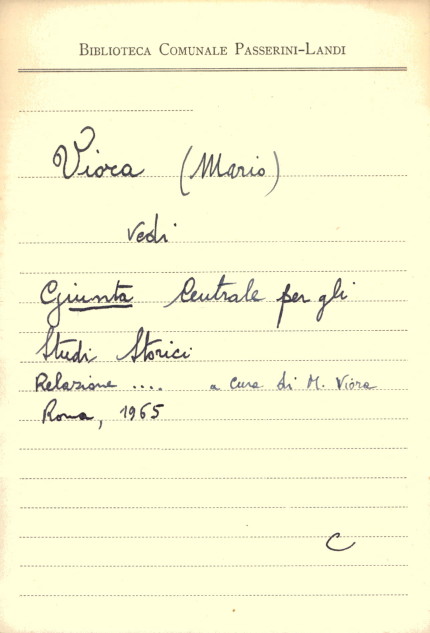 BIBLIOTECA COMUNALE PASSERINI-LANDI
Viora (Mario)
vedi
Giunta Centrale per gli
Studi Storici
Relazione .... a cura di M. Viora
Roma, 1965
C